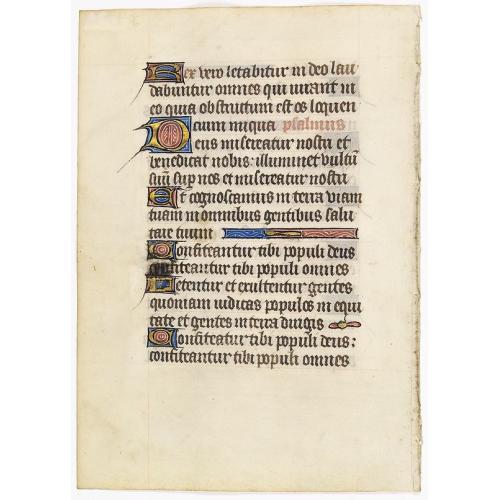 Rex vero letabitur in deo lau
dabuntur omnes qui iurant in
eo quia obstructum est os loquen
cium iniqua psalmus
Deus misereatur nostri et
benedicat nobis: illuminet vultum
suum sup nos et misereatur nostri
Et cognoscamus in terra viam
tuam in omnibus gentibus salu
tare tuum
Confiteantur tibi populi deus
confiteantur tibi populi omnes
Letentur et exultentur gentes
quoniam iudicas populos in equi
tate et gentes in terra dirigis
Confiteatur tibi populi deus:
confiteantur tibi populi omnes